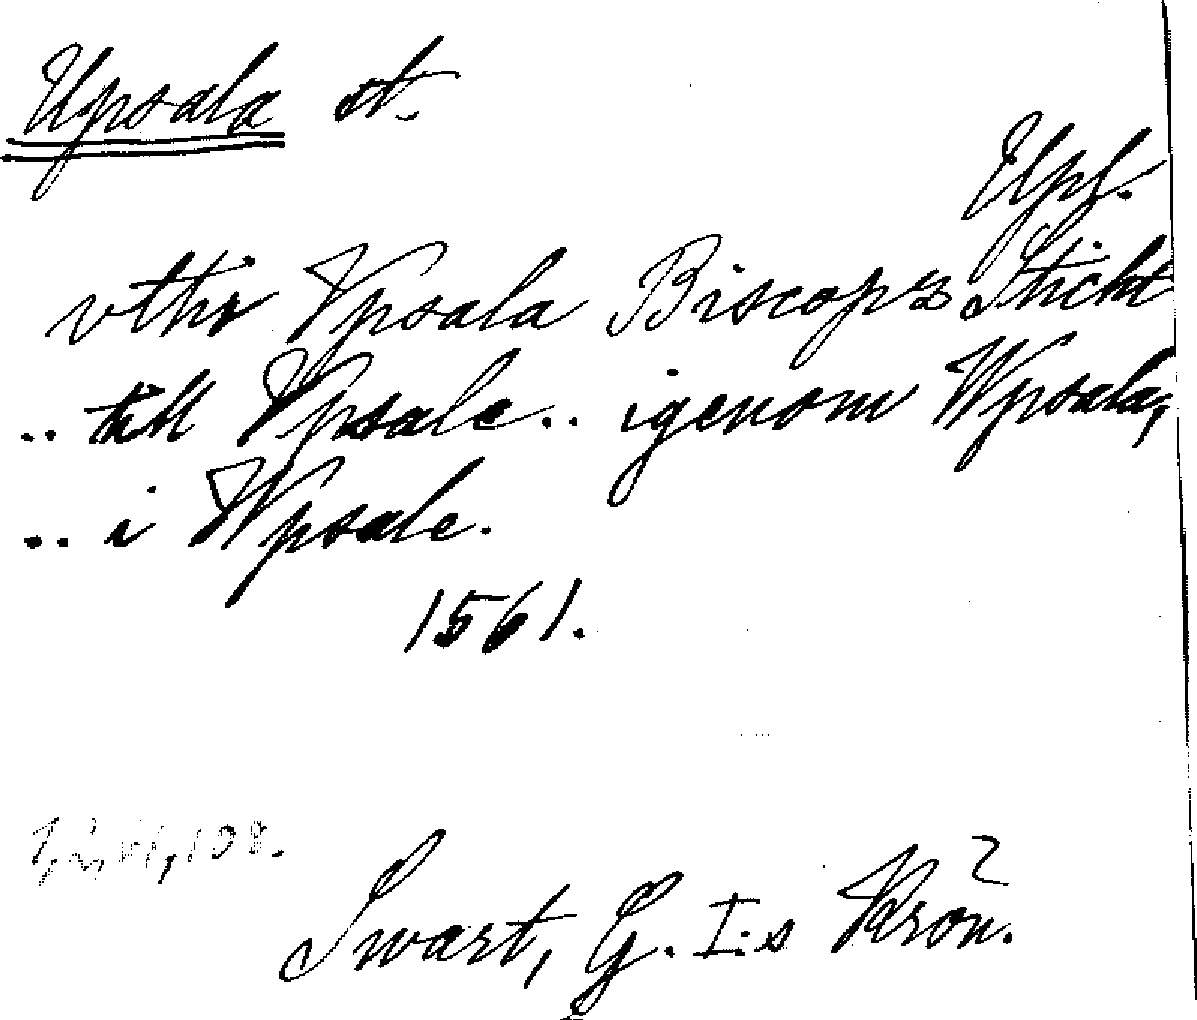 Upsala st.
Upl.
vthi Vpsala Biscops Sticht
.. till Vpsale.. igenom Wpsala,
.. i Wpsale.
1561.
1, 2, 61, 108.
Swart, G. I:s Krön.